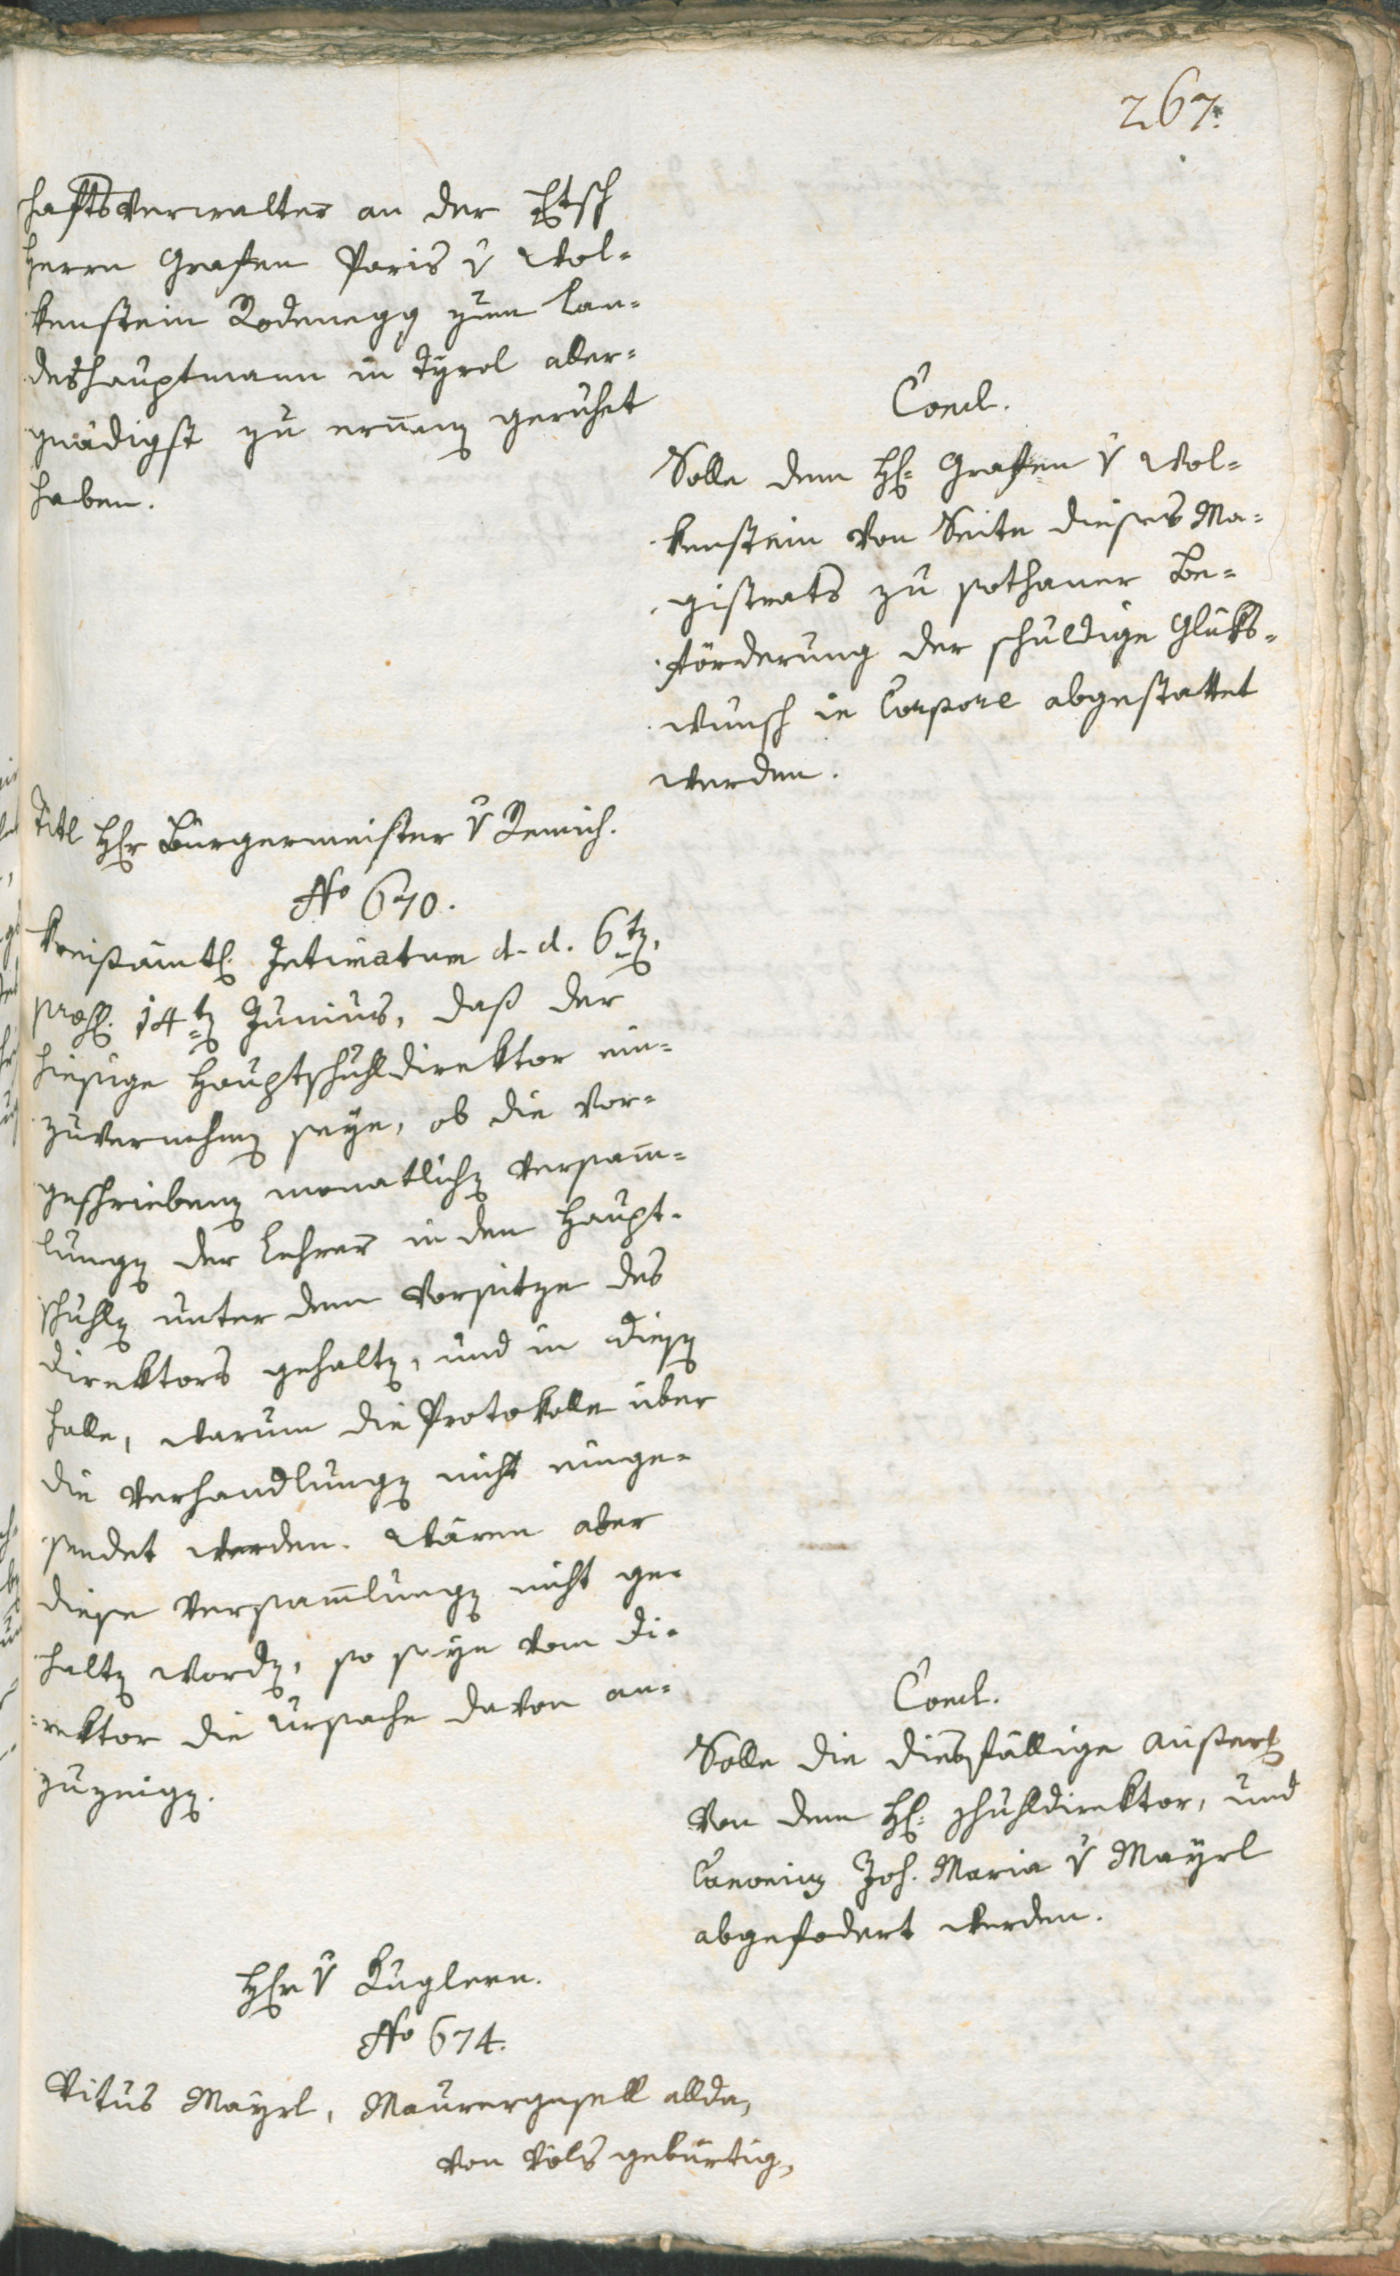 267.
haftsverwalter an der Etsch
Herrn Grafen Paris v Wol-
kenstein Rodenegg zum Lan-
deshauptmann in Tyrol aller-
gnädigst zu ernen̄en geruhet
haben.
Concl.
Solle dem H. Grafen v Wol-
kenstein von Seite dieses Ma-
gistrats zu sothaner Be-
förderung der schuldige Glüks-
wunsch in Corpore abgestattet
werden.
Titl Hr Bürgermeister v Remich.
No 670.
Kreisämtl. Intimatum d. d. 6ten,
præs. 14ten Junius, daß der
hiesige Hauptschuldirektor ein-
zuvernehmen seye, ob die vor-
geschriebenen monatlichen Versam̄-
lungen der Lehrer in den Haupt-
schuhlen unter dem Vorsitze des
Direktors gehalten, und in diesen
Falle, warum die Protokolle über
die Verhandlungen nicht einge-
sendet werden. Wären aber
diese Versam̄lungen nicht ge-
halten worden, so seye vom Di-
rektor die Ursache davon an-
zuzeigen.
Concl.
Solle die diesfällige
von dem H. Schuhldirektor, und
Joh. Maria v Mayrl
abgefodert werden.
Hr v Kuglern.
No 674.
Vitus Mayrl, Maurergesell allda,
von Völs gebürtig,